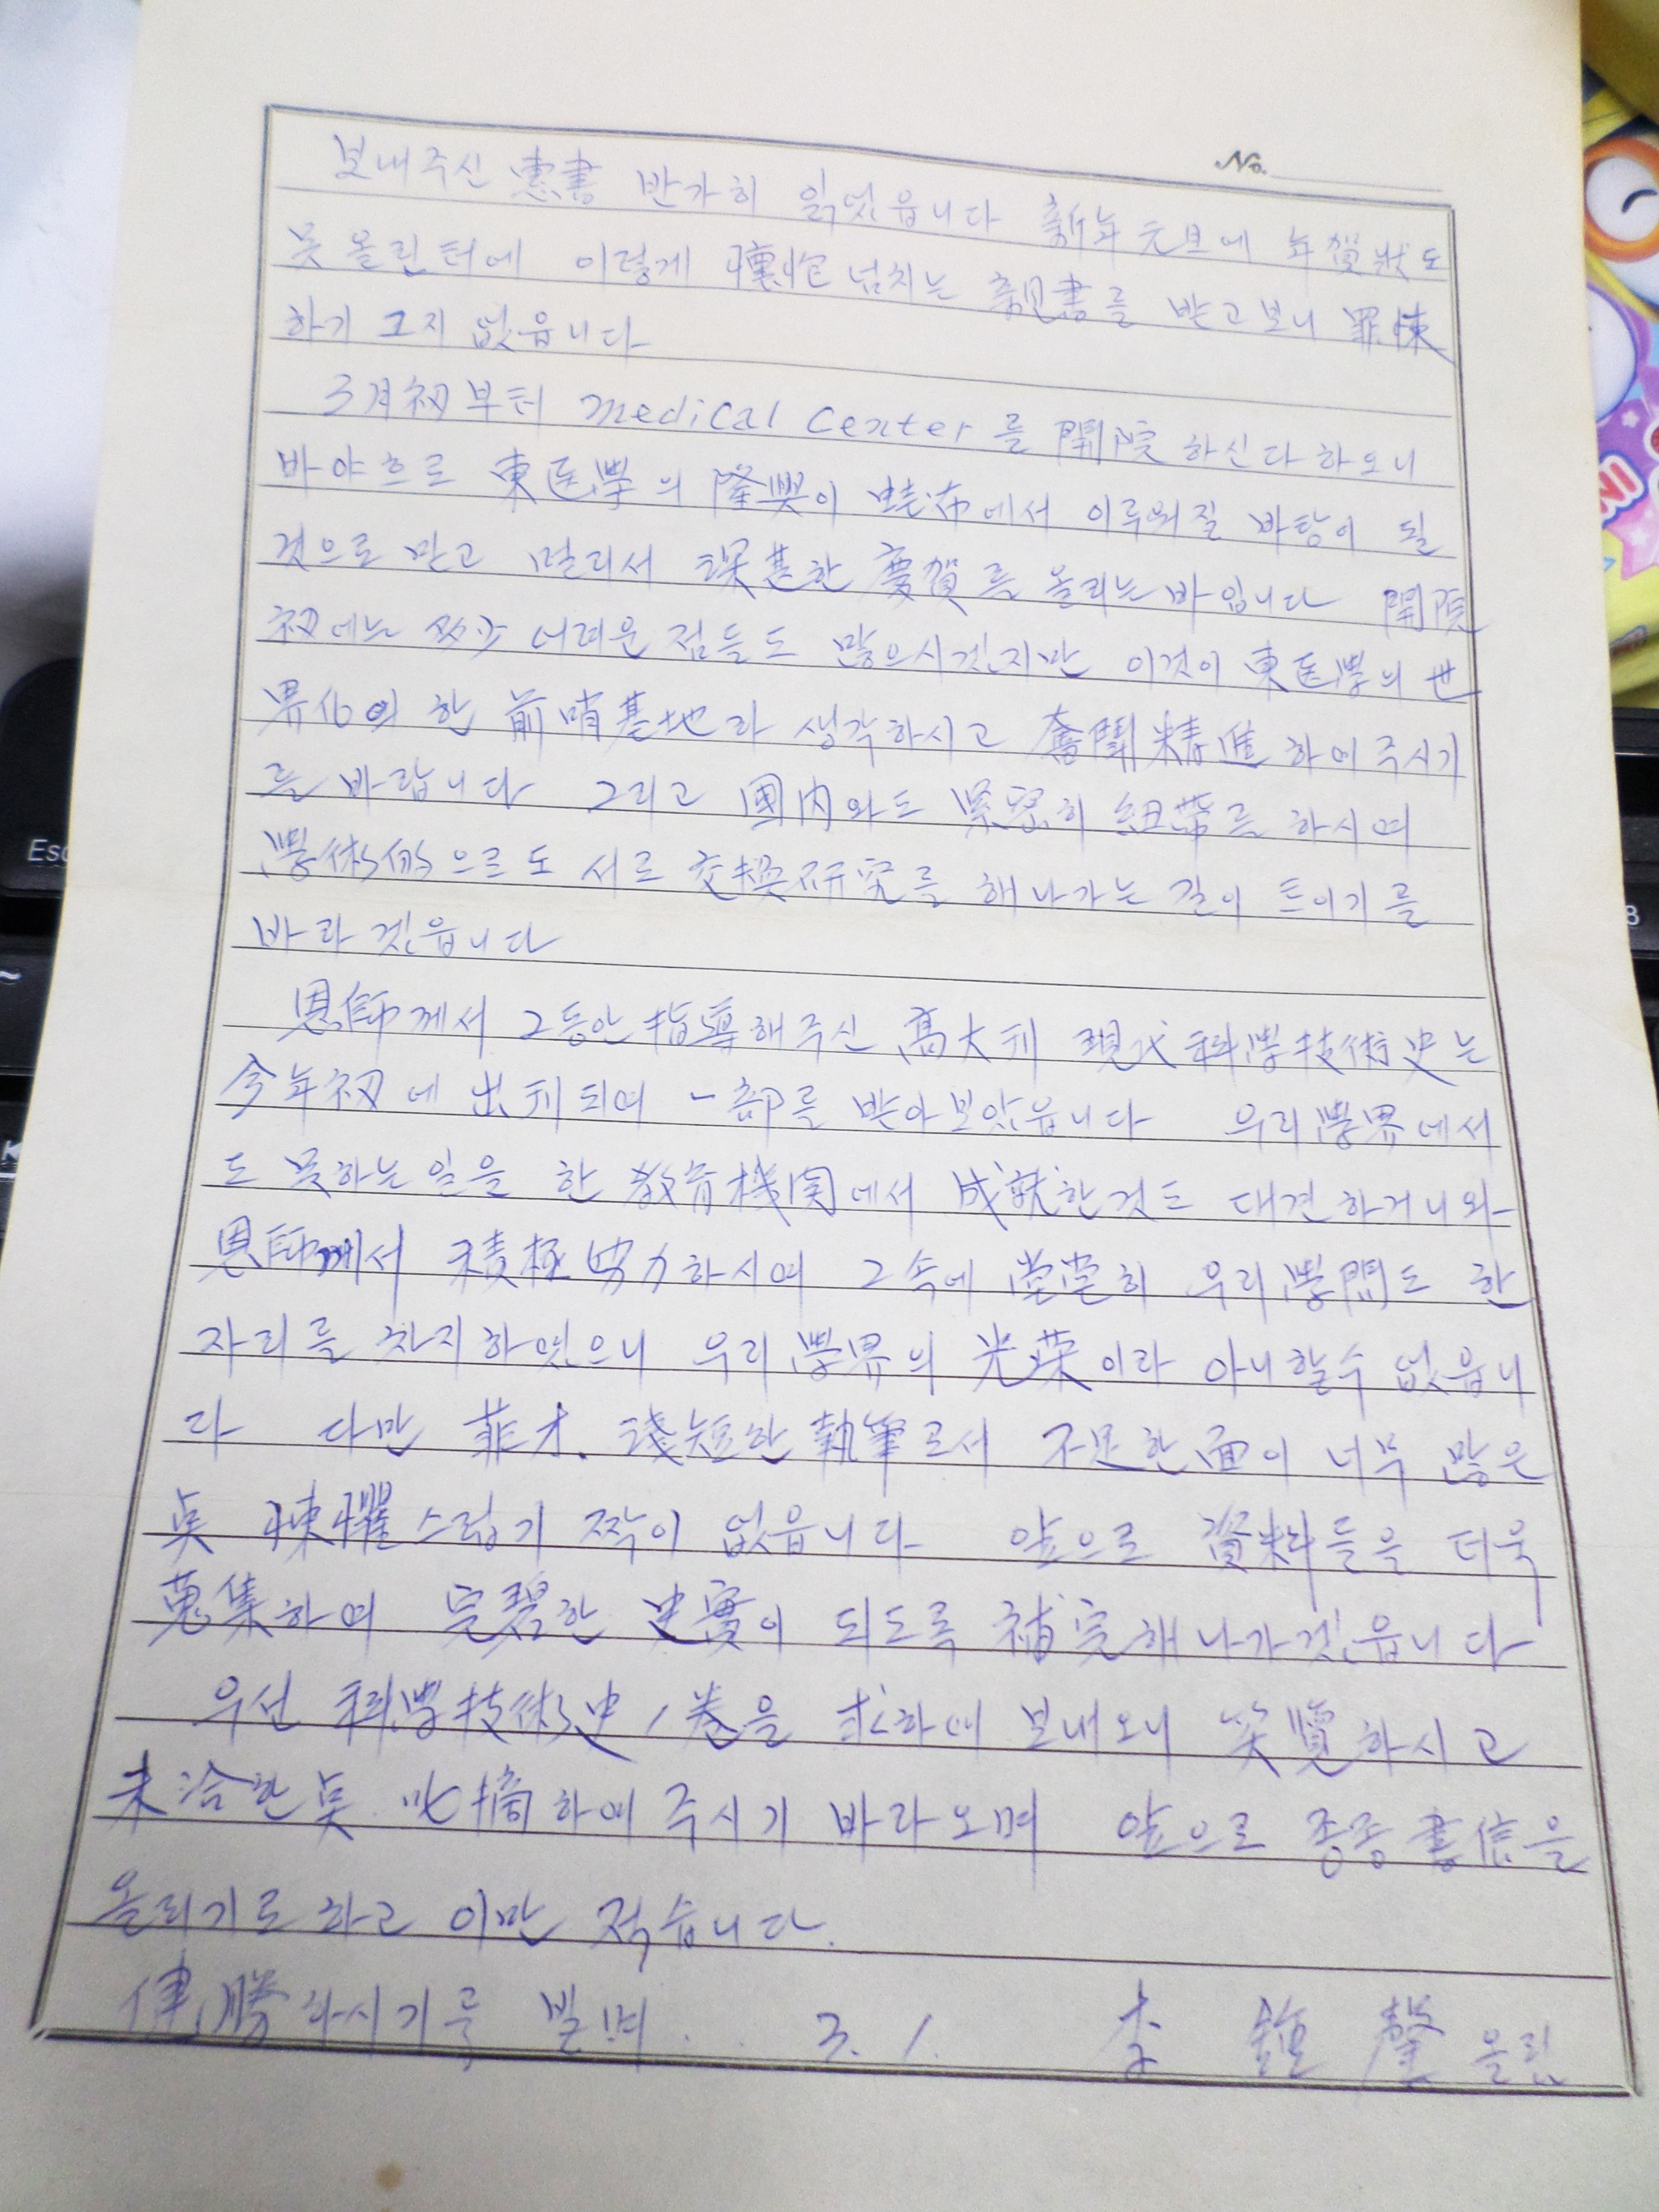 No.
보내주신 惠書 반가히 읽었읍니다 新年元旦에 年賀狀도
못올린터에 이렇게 懷抱 넘치는 親書를 받고보니 罪悚
하기 그지 없읍니다
3月初부터 medical center를 開院하신다하오니
바야흐로 東医學의 隆興이 에서 이루워질 바탕이 될
것으로 믿고 멀리서 慶賀를 올리는 바입니다 開院
初에는 多少 어려운 점들도 많으시겠지만 이것이 東医學의 世
界化의 한 前哨基地라 생각하시고 奮鬪精進하여주시기
를 바랍니다 그리고 國內와도 緊密히 紐帶를 하시며
學術的으로도 서로 交換研究를 해나가는 길이 트이기를
바라겠읍니다
恩師께서 그동안 指導해주신 高大刊 現代科學技術史는
今年初에 出刊되여 一部를 받아보았읍니다 우리學界에서
도 못하는 일을 한 教育機関에서 成就한것도 대견하거니와
恩師께서 積極 協力하시여 그속에 堂堂히 우리學問도 한
자리를 차지하였으니 우리學界의 光榮이라 아니할수 없읍니
다 다만 菲才. 淺短한 執筆로서 不足한 面이 너무 많은
点 悚懼스럽기 짝이 없읍니다 앞으로 資料들을 더욱
蒐集하여 完碧한 史實이 되도록 補完해나가겠읍니다
우선 科學技術史 1卷을 求하여 보내오니 笑覽하시고
未洽한点 叱摘하여 주시기 바라오며 앞으로 종종 書信을
올리기로 하고 이만 적습니다.
健勝하시기를 빌며.. 3. 1. 李 鍾 馨 올림
Esc